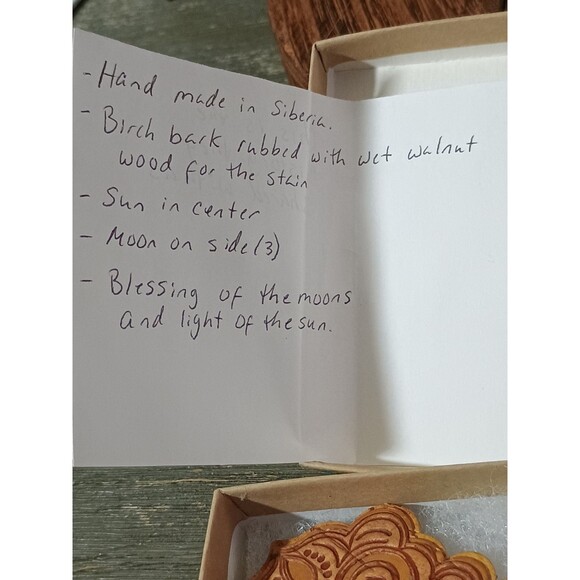 - Hand made in Siberia.
- Birch bark rubbed with wet walnut
wood for the stain
- Sun in center
- Moon on side (3)
- Blessing of the moons
and light of the sun.